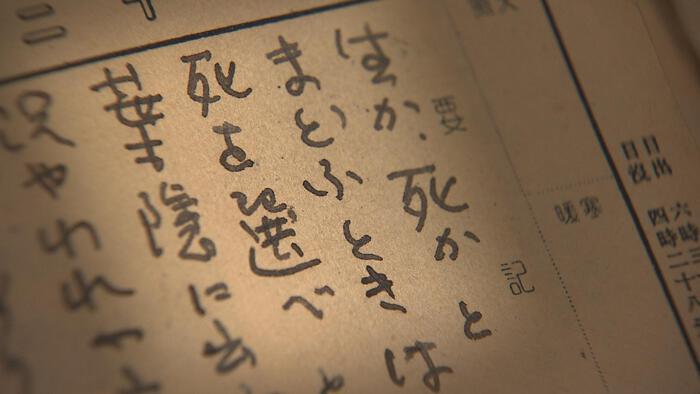 日出 六時三
日没 四時二十八
寒暖
要記
生か、死かと
まどふときは
死を選べ
葉隠に
況やわれ
二